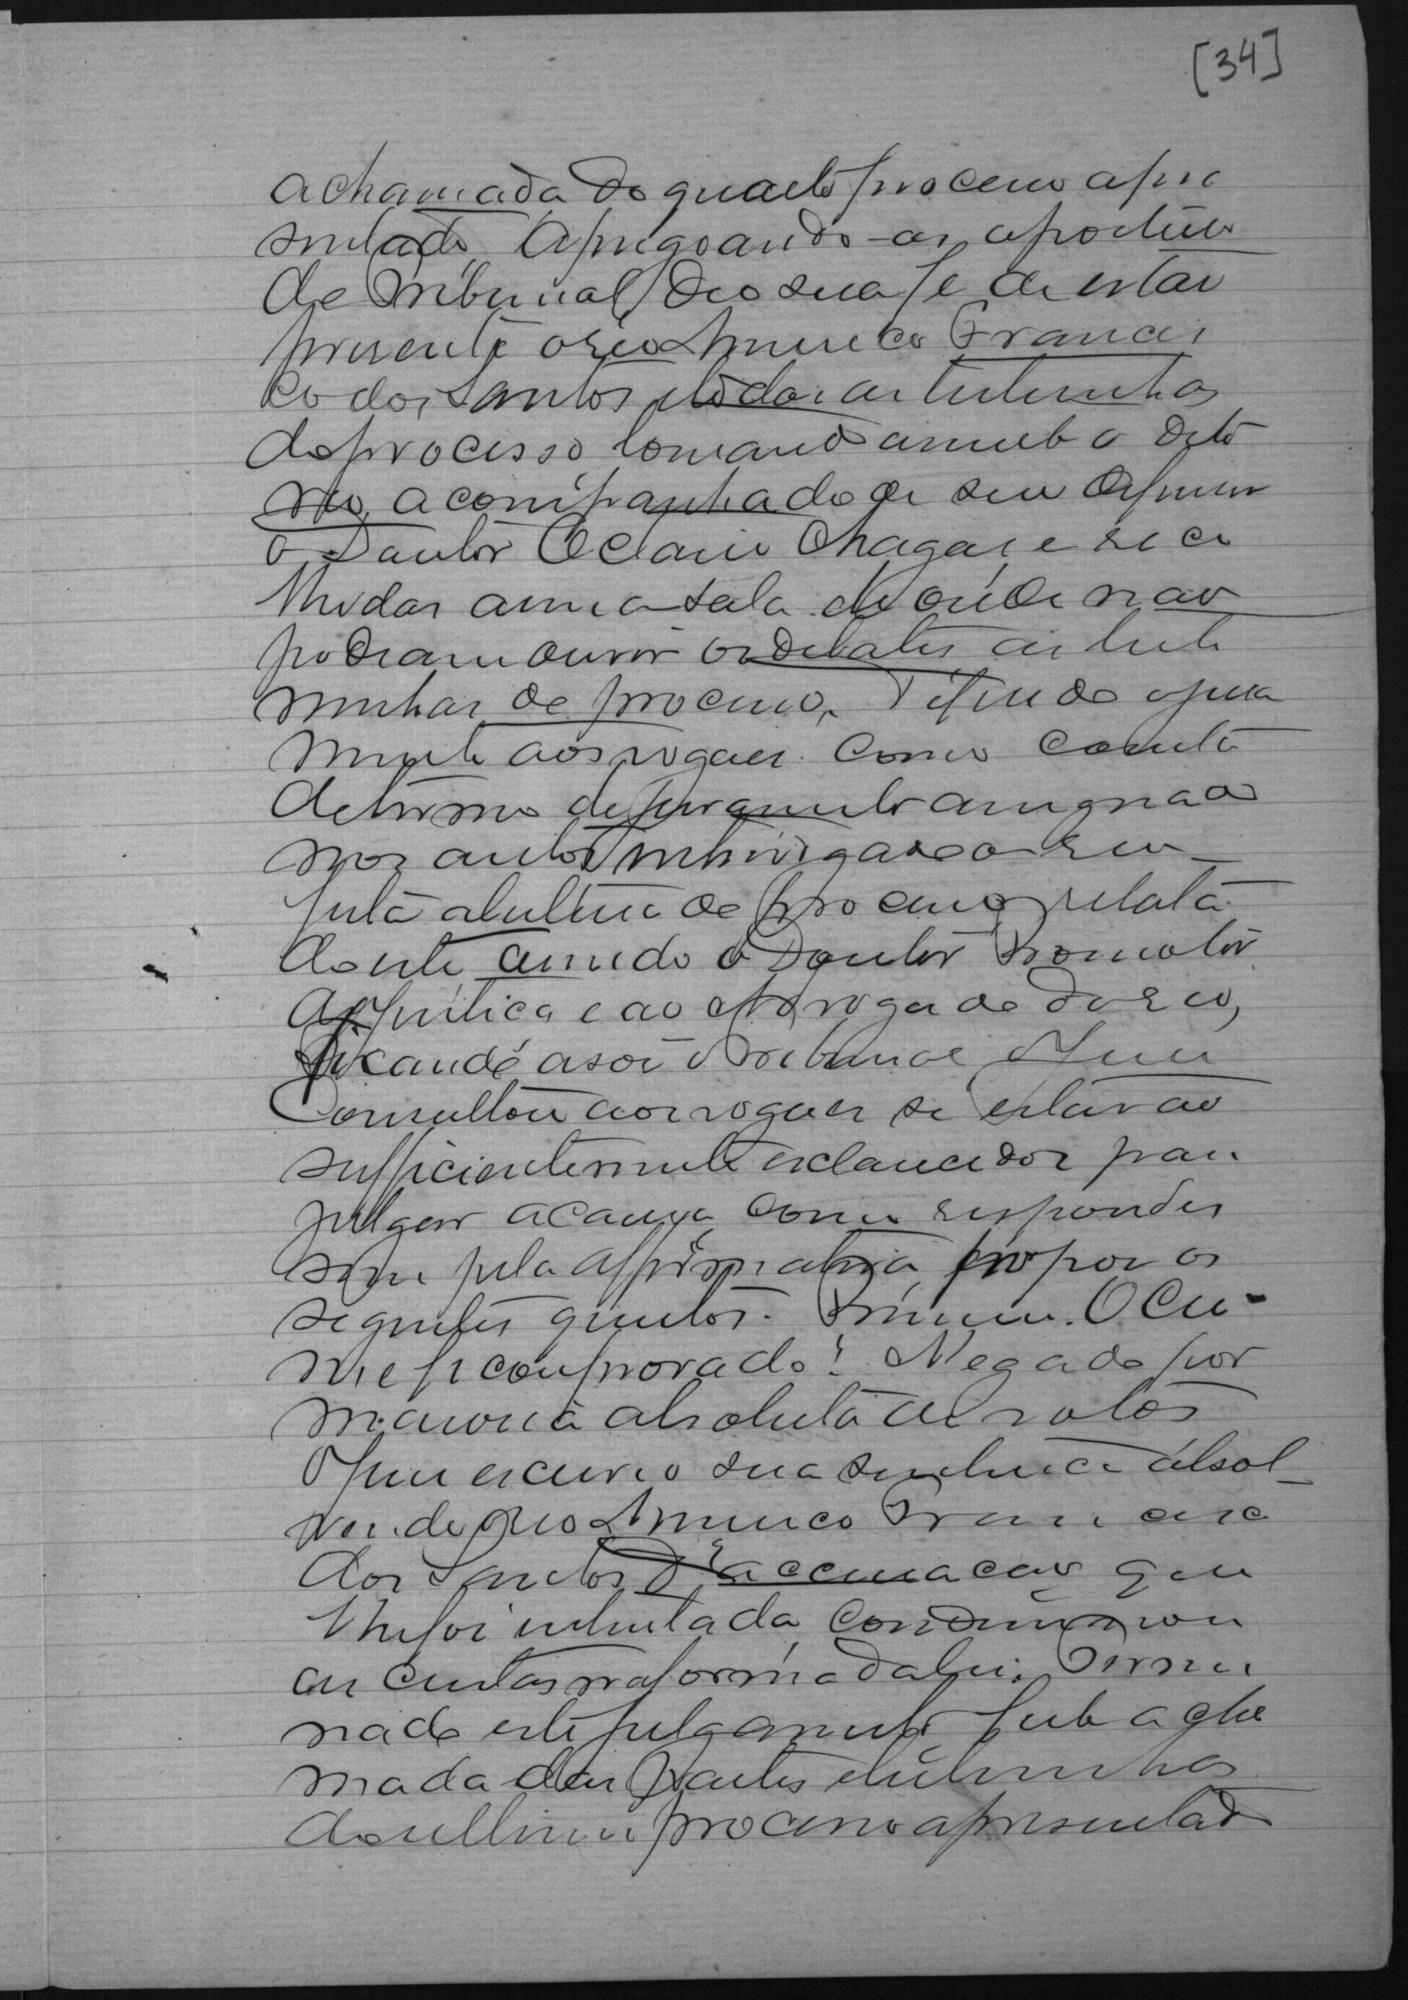 [34]
a chamada do quarto processo apre
sentado. Apregoando-as o porteiro
do Tribunal deo sua fé de estar
presente o réo Americo Francis
co dos Santos e todas as testemunhas
do processo, tomando assento o dito
réo, acompanhado de seu defensor
o Doutor Chagas, e reco
lhidas a uma sala de onde não
podiam ouvir os debates as teste
munhas do processo. Deferido o jura
mento aos vogaes como consta
do termo de juramento assignado
nos autos interrogado o réo
feita a leitura do processo, e relata
do este, ouvido o Doutor Promotor
da Justiça e ao Advogado do réo,
ficando a sós o Tribunal o Juiz
Consultou aos vogaes se estavão
sufficientemente esclarecidos para
julgar a causa como responder
sem pela affirmativa propoz os
seguintes quesitos. Primeiro. O Cri-
me está comprovado? Negado por
maioria absoluta de votos
O Juiz escreveo sua sentença absol
vendo o réo Americo Francisco
dos Santos da accusação que
lhe foi intentada, condemnou
as custas na forma da lei. Termi
nado este julgamento, feita a cha
mada das partes e testemunhas
do ultimo processo apresentado